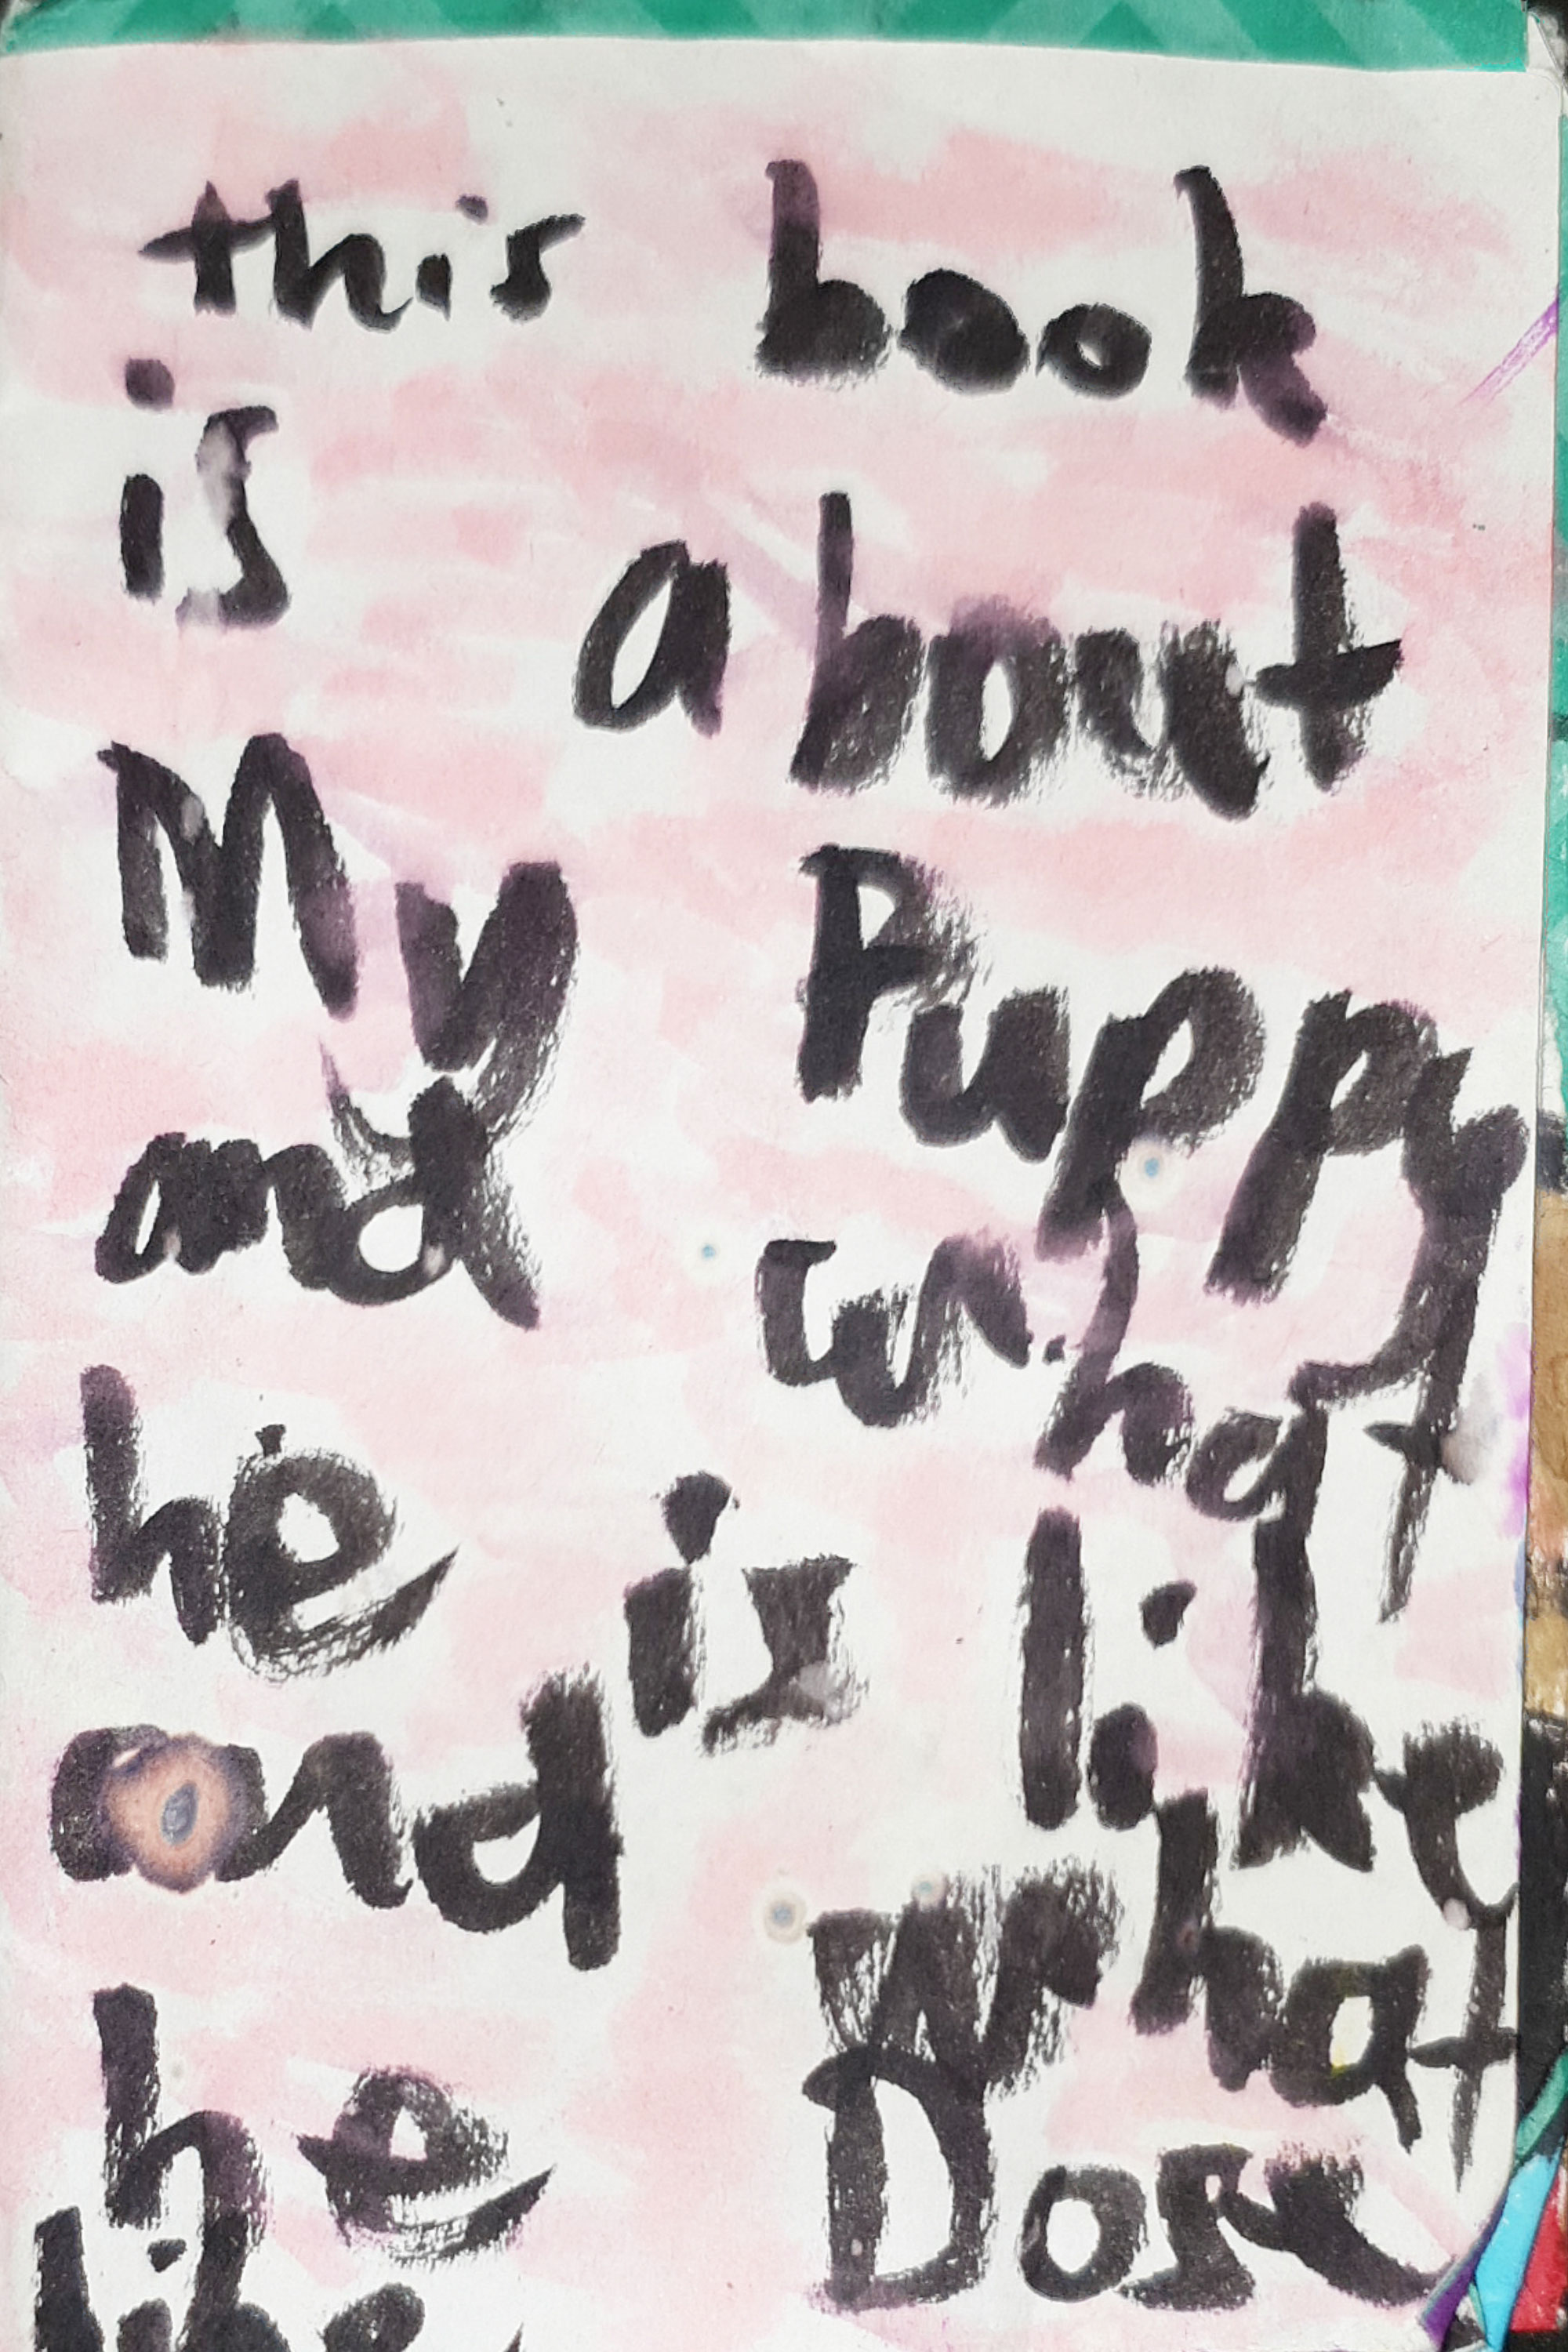 this book
is about
My Puppy
and what
he is like
and what
he Dose
like